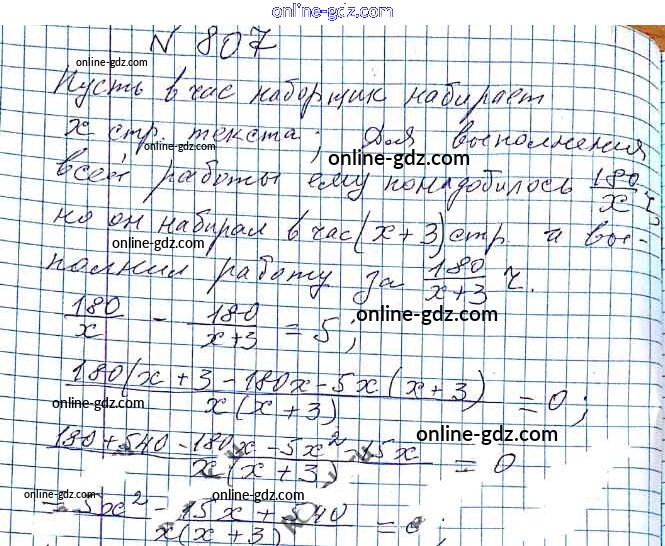 online-gdz.com
N 807
online-gdz.com
Пусть в час наборщик набирает
x стр. текста; Для выполнения
online-gdz.com
online-gdz.com
всей работы ему понадобилось 180/x ч,
online-gdz.com
но он набирал в час (x+3) стр. и вы-
online-gdz.com
полнил работу за 180/(x+3) ч.
online-gdz.com
180/x - 180/(x+3) = 5;
online-gdz.com
(180(x+3 - 180x - 5x(x+3))/(x(x+3)) = 0;
online-gdz.com
online-gdz.com
(180+540-180x-5x²-15x)/(x(x+3)) = 0
online-gdz.com
(-5x² - 15x + 540)/(x(x+3)) = 0;